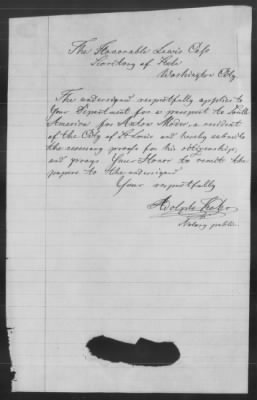 The Honorable Lewis Cass
Secretary of State
Washington City
The undersigned respectfully applies to
Your Department for a passport to South
America for Anton Moder, a resident
of the City of St Louis and hereby submits
the necessary proofs for his citizenship,
and prays Your Honor to remit the
papers to the undersigned
Your respectfully
Adolph
Notary public